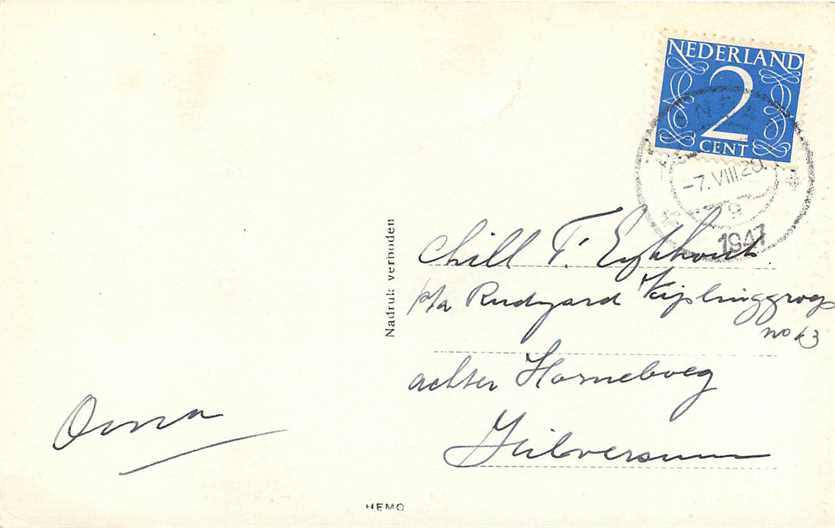 NEDERLAND
2
CENT
-7.VIII.20
9
1947
Nadruk verboden
Chill T. Eykhout
p/a Rudyard Kiplinggroep
no 13
achter Horneboeg
Hilversum
Oma
HEMO